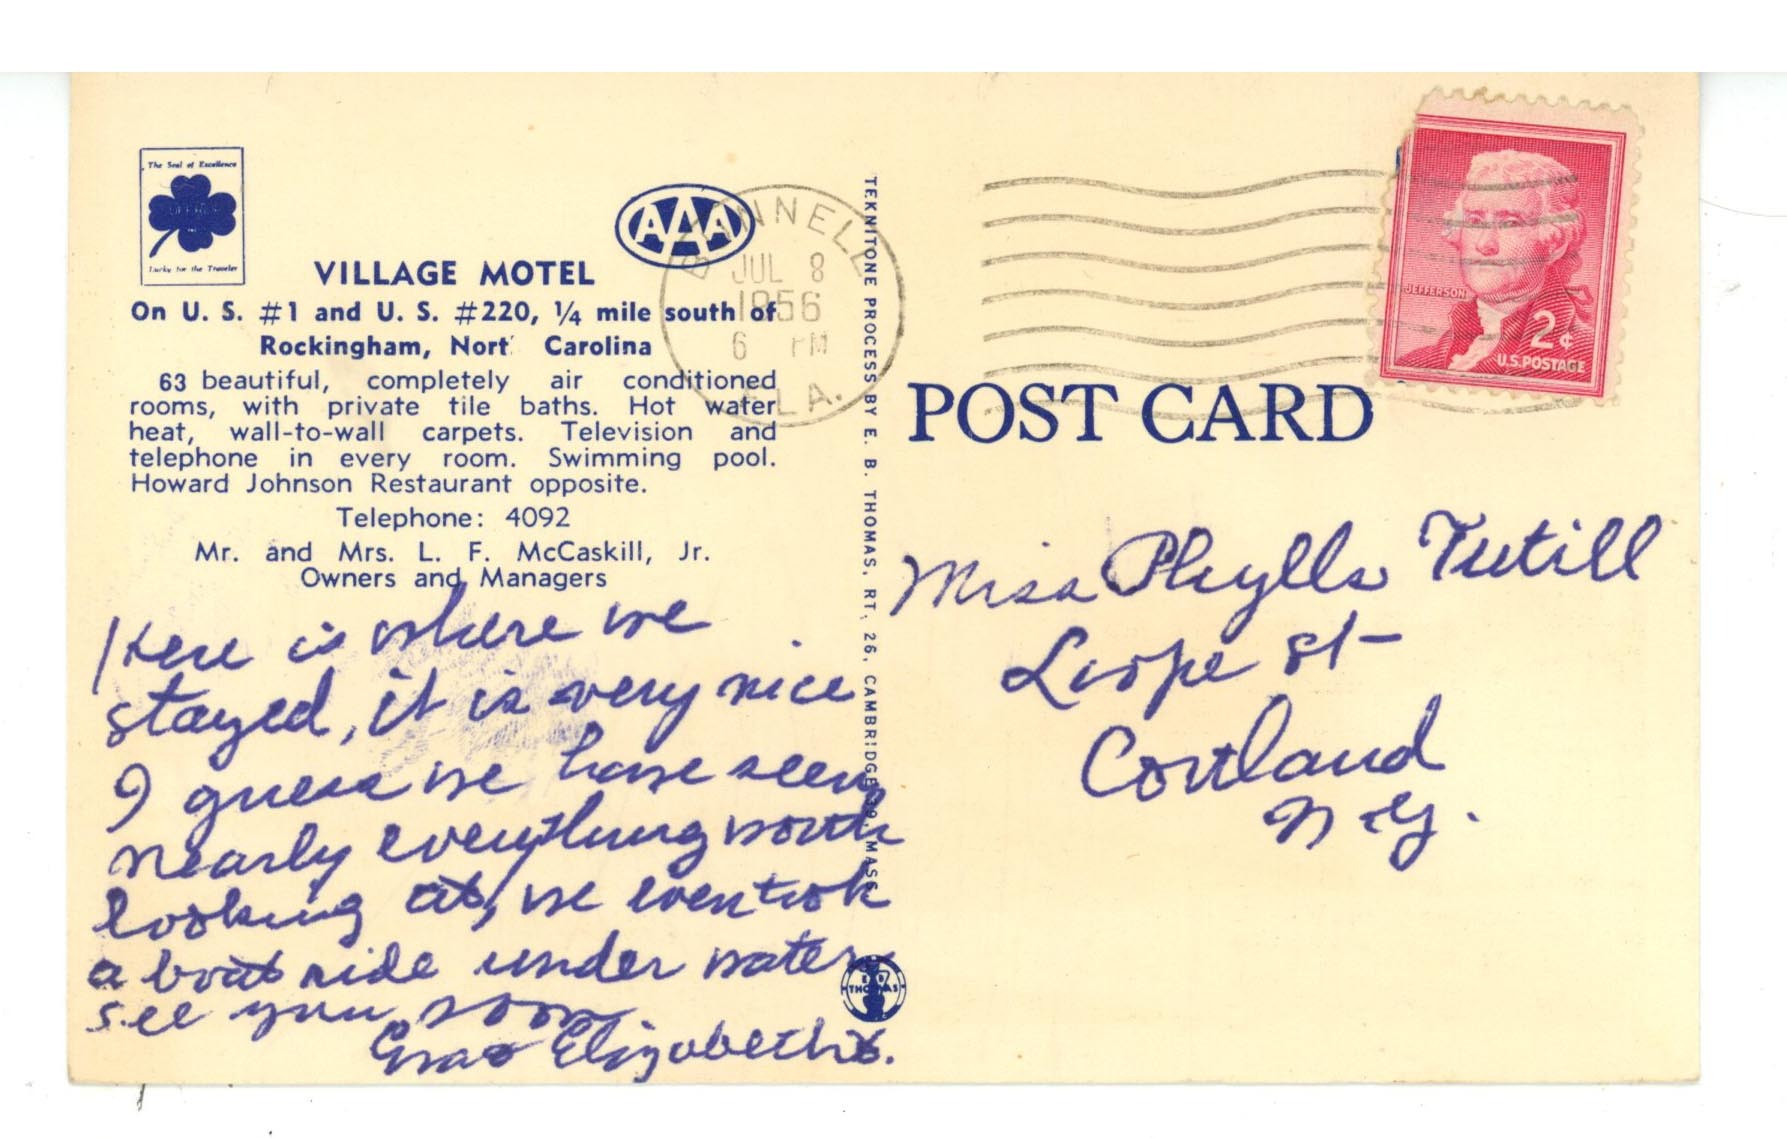 The Seal of Excellence
Lucky for the Traveler
AAA
VILLAGE MOTEL
On U. S. #1 and U. S. #220, 1/4 mile south of
Rockingham, Nort Carolina
63 beautiful, completely air conditioned
rooms, with private tile baths. Hot water
heat, wall-to-wall carpets. Television and
telephone in every room. Swimming pool.
Howard Johnson Restaurant opposite.
Telephone: 4092
Mr. and Mrs. L. F. McCaskill, Jr.
Owners and Managers
Here is where we
stayed, it is very nice
I guess we have seen
nearly everything worth
looking at, we even took
a boat ride under water
see you soon
Elizabeth
TEKNITONE PROCESS BY E. B. THOMAS, RT. 26, CAMBRIDGE 39, MASS.
THOMAS
BUNNELL
JUL 8
1956
6 PM
LA.
JEFFERSON
2¢
U.S. POSTAGE
POST CARD
Miss Phylls Tutill
Loope St
Cortland
N.Y.